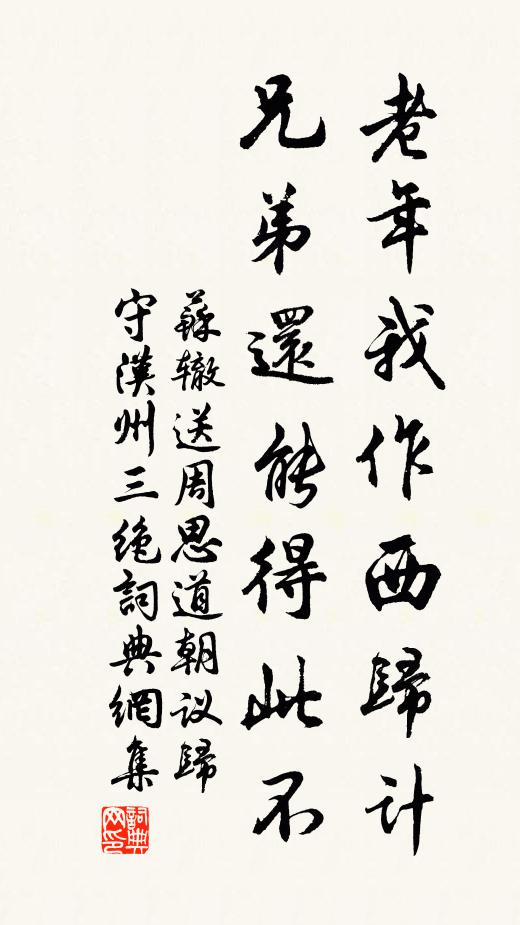 老年我作西歸计
兄弟還能得此不
蘇辙送周思道朝议歸
守漢州三绝詞典網集
詞典
网印